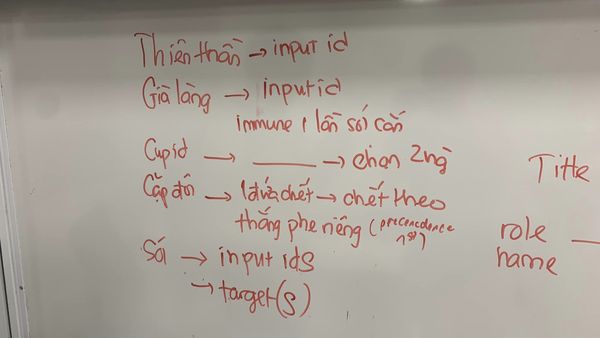 Thiên thần → input id
Già làng → input id
immune 1 lần sói cắn
Cupid → ______ → chọn 2ng
Cặp đôi → 1 đứa chết → chết theo
thắng phe riêng (precendence
1st)
Sói → input ids
→ target(s)
Title
role —
name